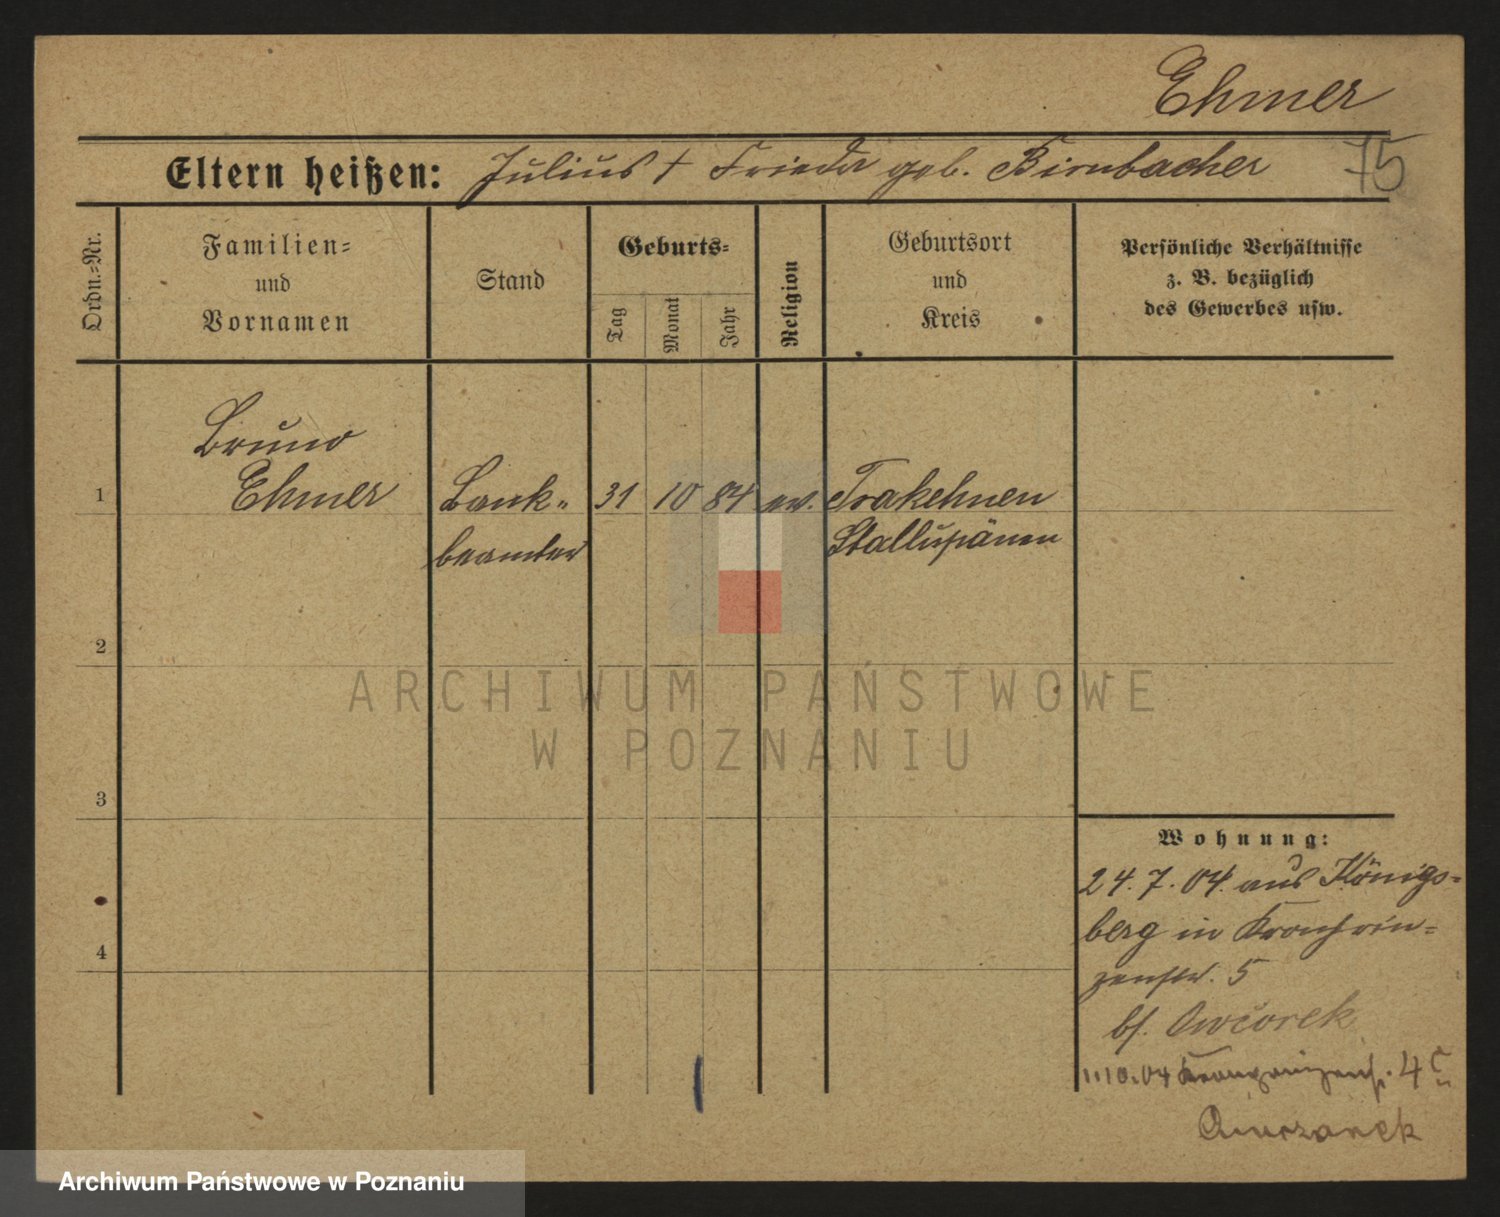 Ehmer
75
Eltern heißen: Julius † Frieda geb. Birnbacher
Ordn.-Nr.
Familien-
und
Vornamen
Stand
Geburts-
Tag
Monat
Jahr
Religion
Geburtsort
und
Kreis
Persönliche Verhältnisse
z. B. bezüglich
des Gewerbes usw.
Bruno
1 Ehmer Bank- 31 10 84 ev. Trakehnen
beamter Stallupänen
2
3
4
Wohnung:
24. 7. 04. aus Königs-
berg in Kronprin-
zenstr. 5
bf. Owčorek
1.10.04 Kronprinzenst. 4
ARCHIWUM PAŃSTWOWE
W POZNANIU
Archiwum Państwowe w Poznaniu